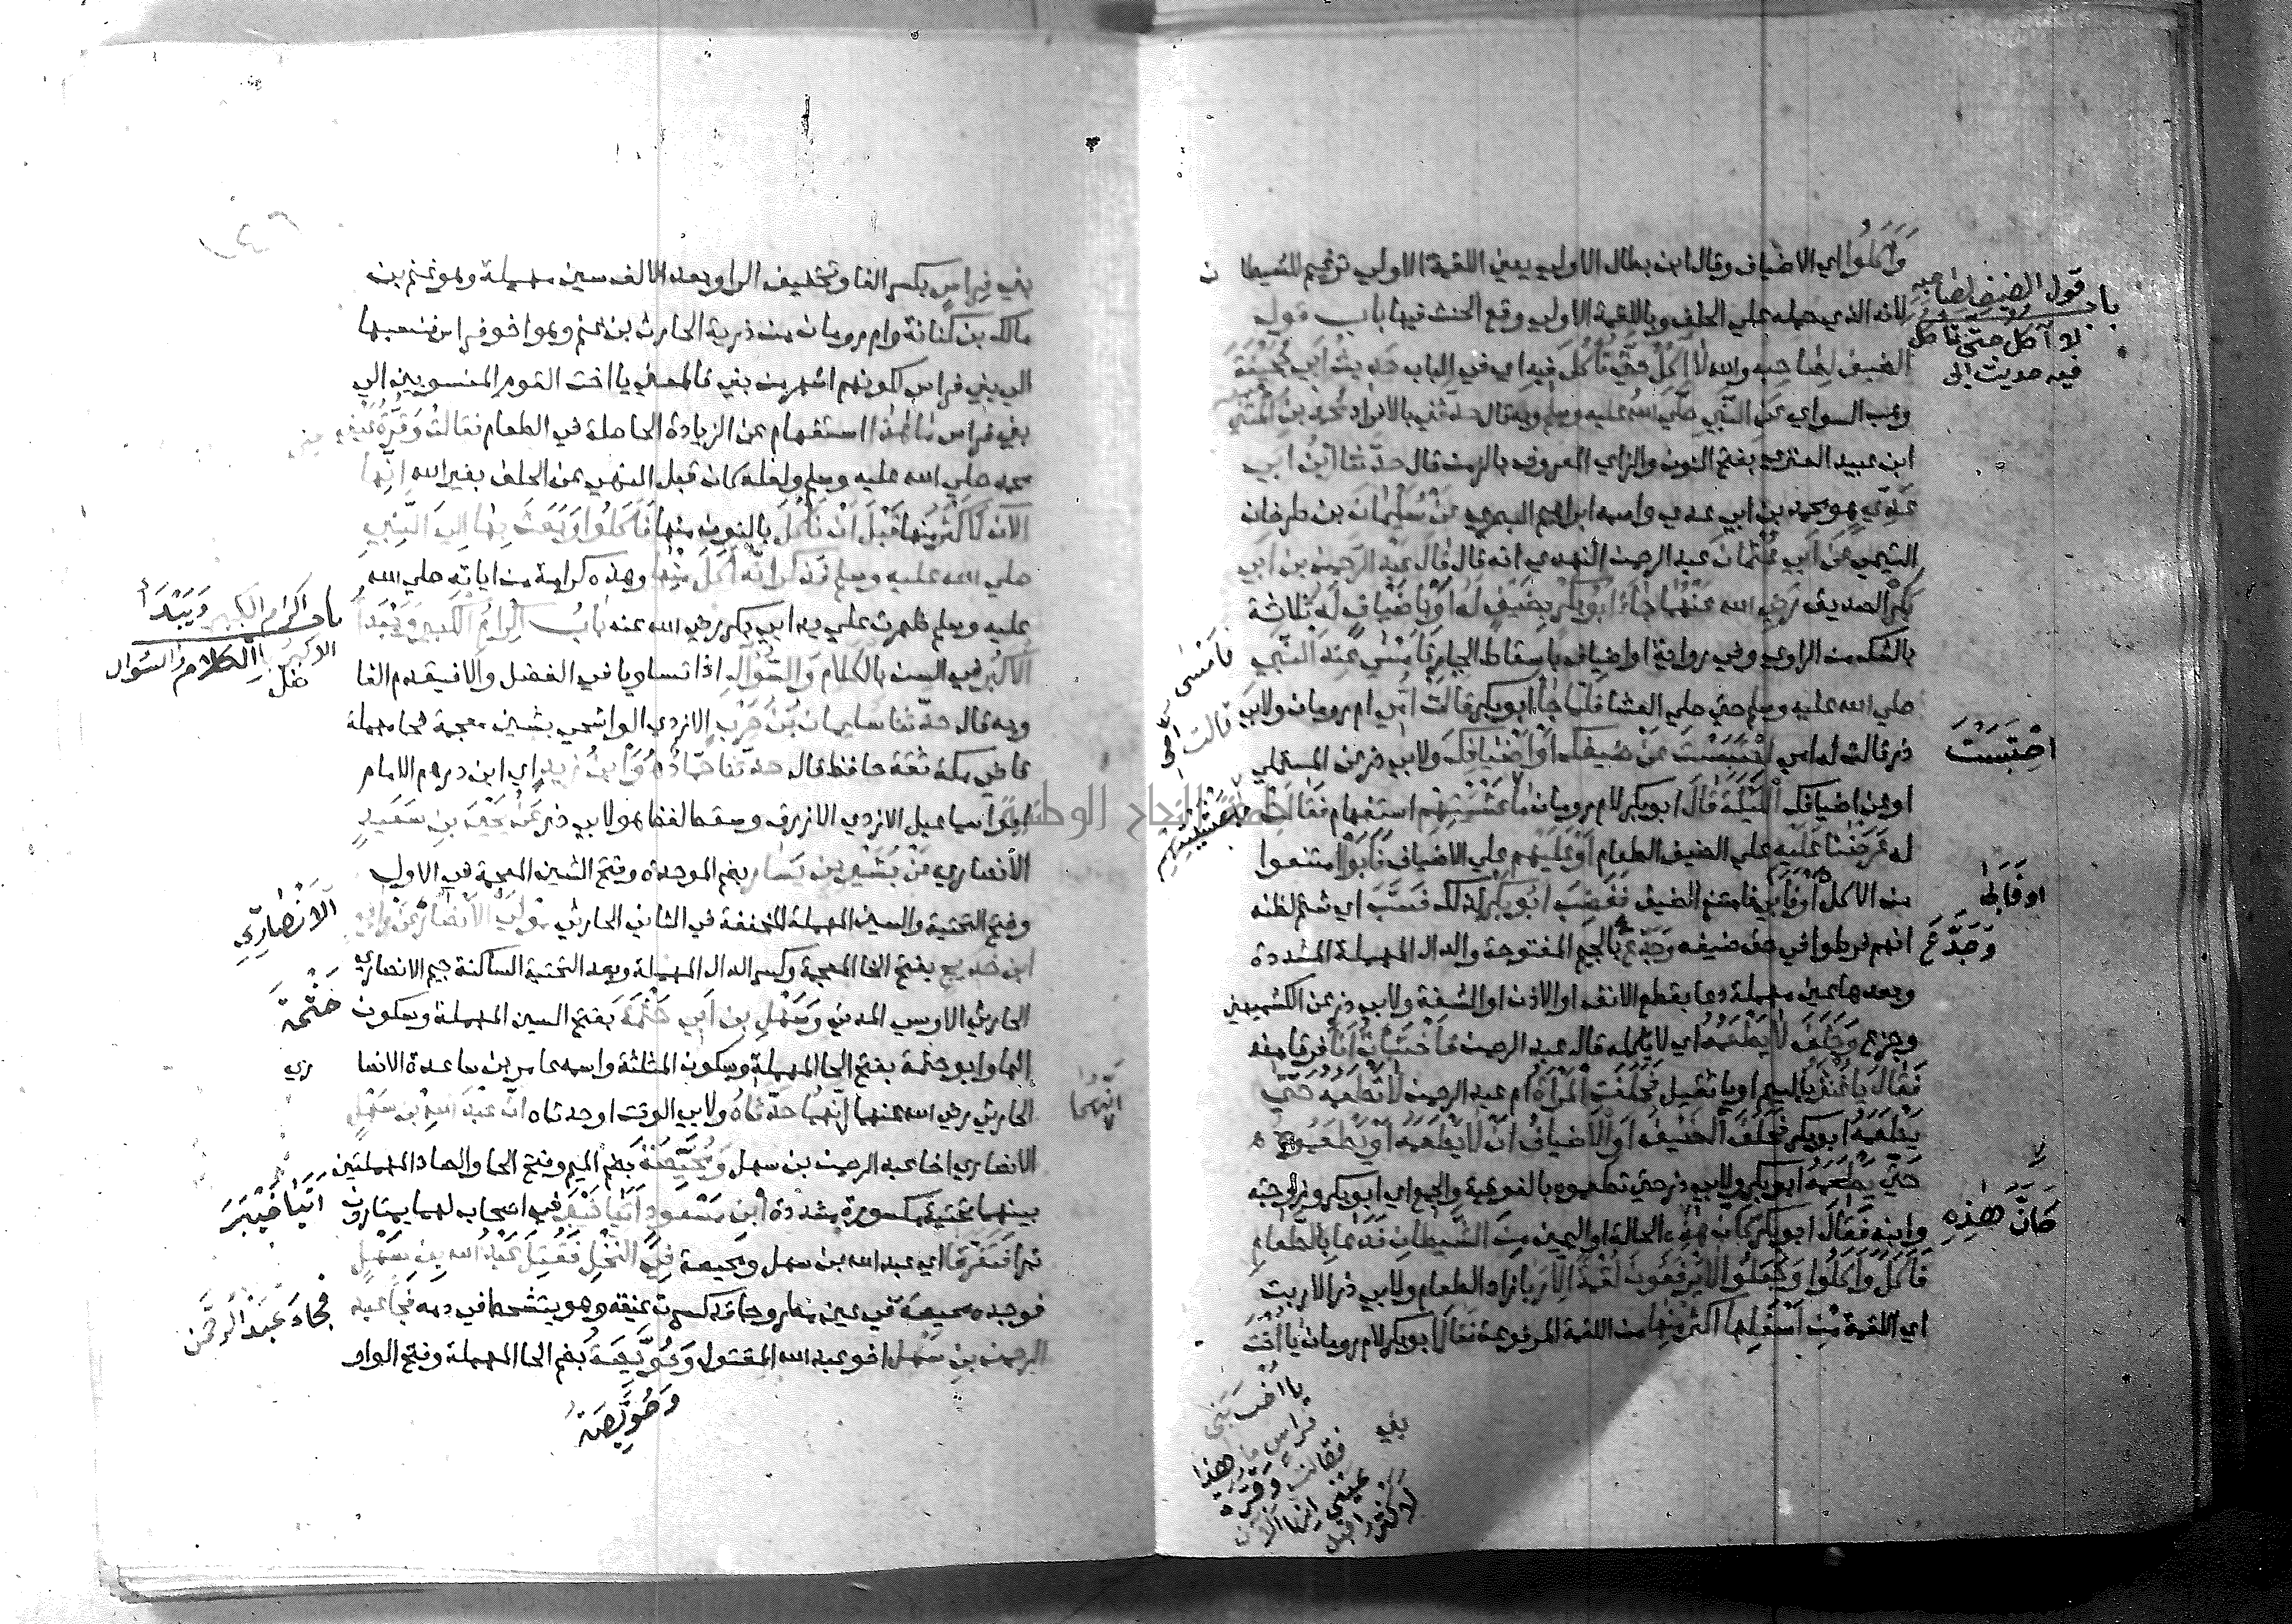 وَأَكَلُوا اي الاضياف وقال ابن بطال الاولي يعني اللقمة الاولي ترغيم للشيطان
لانه الذي حمله علي الحلف وباللقمة الاولي وقع الحنث فيها باب قول
الضيف لصاحبه والله لا آكل حتي تأكل فيه اي في الباب حديث ابي جحيفة
وهب السواي عن النبي صلي الله عليه وسلم وبه قال حدثني بالافراد محمد بن المثني
ابن عبيد العنزي بفتح النون والزاي المعروف بالزمن قال حدثنا ابن ابي
عدي هو محمد بن ابي عدي واسمه ابراهيم البصري عن سليمان بن طرخان
التيمي عن ابي عثمان عبد الرحمن النهدي انه قال قال عبد الرحمن بن ابي
بكر الصديق رضي الله عنهما جاء ابو بكر بضيف له او باضياف له ثلاثة
بالشك من الراوي وفي رواية او اضياف باسقاط الجار فامسي عند النبي
صلي الله عليه وسلم حتي صلي العشا فلما جا ابو بكر قالت امي ام رومان ولابي
ذر قالت له امي احتبست عن ضيفك او اضيافك ولابي ذر عن المستملي
او عن اضيافك الليلة قال ابو بكر لام رومان ما عشيتهم استفهام فقالت
له عرضنا عليه علي الضيف الطعام او عليهم علي الاضياف فابوا امتنعوا
من الاكل او فابي فامتنع الضيف فغضب ابو بكر لذلك فسب اي شتم لظنه
انهم فرطوا في حق ضيفه وجدع بالجيم المفتوحة والدال المهملة المشددة
وبعدها عين مهملة دعا بقطع الانف او الاذن او الشفة ولابي ذر عن الكشميهني
وجزع وحلف لا يطعمه اي لا ياكله قال عبد الرحمن فاختبأت انا فرقا منه
فقال يا غنثر يا لئيم او يا ثقيل فحلفت المراة ام عبد الرحمن لا تطعمه حتي
يطعمه ابو بكر فحلف الضيف او الاضياف ان لا يطعمه او يطعموه
حتي يطعمه ابو بكر ولابي ذر حتي تطعموه بالفوقية والجمع اي ابو بكر وزوجته
وابنه فقال ابو بكر كان هذه الحالة او اليمين من الشيطان فدعا بالطعام
فاكل واكلوا وجعلوا لا يرفعون لقمة الا ربا زاد الطعام ولابي ذر الا ربت
اي اللقمة من اسفلها اكثر منها من اللقمة المرفوعة فقال ابو بكر لام رومان يا اخت
بني
باب قول الضيف لصاحبه
لا آكل حتى تأكل
فيه حديث ابى
فامسى
قالت امى
احتبست
عشيتهم
او فابى
وجدع
كان هذه
يا اخت بنى
فراس ما هذا
فقالت وقرة
عينى انها الآن
لاكثر قبل
بني فراس بكسر الفا وتخفيف الرا وبعد الالف سين مهملة وهو غنم بن
مالك بن كنانة وام رومان من ذرية الحارث بن غنم وهو اخو فراس نسبها
الي بني فراس لكونهم اشهر من بني فالمعني يا اخت القوم المنسوبين الي
بني فراس ما هذا استفهام عن الزيادة الحاصلة في الطعام فقالت وقرة عيني
محمد صلي الله عليه وسلم ولعله كان قبل النهي عن الحلف بغير الله انها
الان لاكثر منها قبل ان ناكل بالنون منها فاكلوا وبعث بها الي النبي
صلي الله عليه وسلم فذكر انه اكل منها وهذه كرامة من اياته صلي الله
عليه وسلم ظهرت علي يد ابي بكر رضي الله عنه باب اكرام الكبير ويبدأ
الاكبر في السن بالكلام والسؤال اذا تساويا في الفضل والا فيقدم الفا
وبه قال حدثنا سليمان بن حرب الازدي الواشحي بشين معجمة فحا مهملة
قاضي مكة ثقة حافظ قال حدثنا حماد هو ابن زيد اي ابن درهم الامام
ابو اسماعيل الازدي الازرق وسقط لفظ هو لابي ذر عن يحيي بن سعيد
الانصاري عن بشير بن يسار بضم الموحدة وفتح الشين المعجمة في الاول
وفتح التحتية والسين المهملة المخففة في الثاني الحارثي مولي الانصار عن رافع
ابن خديج بفتح الخا المعجمة وكسر الدال المهملة وبعد التحتية الساكنة جيم الانصاري
الحارثي الاوسي المدني وسهل بن ابي حثمة بفتح السين المهملة وسكون
الها وابو حثمة بفتح الحا المهملة وسكون المثلثة واسمه عامر بن ساعدة الانصاري
الحارثي رضي الله عنهما انهما حدثاه ولابي الوقت او حدثاه ان عبد الله بن سهل
الانصاري اخا عبد الرحمن بن سهل ومحيصة بضم الميم وفتح الحا والصاد المهملتين
بينهما تحتية مكسورة مشددة ابن مسعود اتيا خيبر في اصحاب لهما يمتارون
تمرا فتفرقا اي عبد الله بن سهل ومحيصة في النخل فقتل عبد الله بن سهل
فوجده محيصة في عين مطروحا قد كسرت عنقه وهو يتشحط في دمه فجا عبد
الرحمن بن سهل اخو عبد الله المقتول وحويصة بضم الحا المهملة وفتح الواو
باب اكرام الكبير ويبدأ
الاكبر بالكلام والسؤال
ضل
الانصارى
حثمة
انهما
اتيا خيبر
فجاء عبد الرحمن
وحويصة